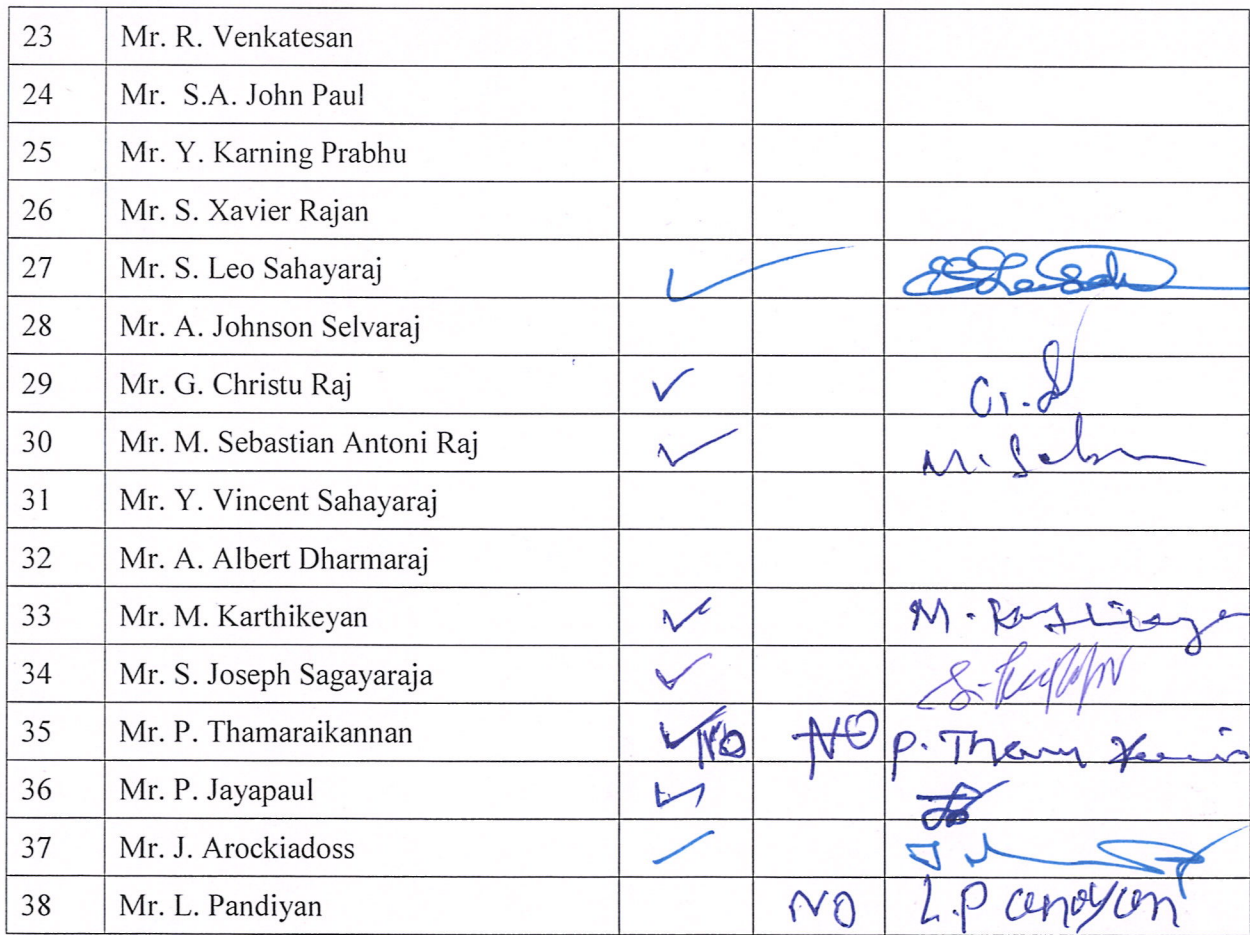 23 Mr. R. Venkatesan
24 Mr. S.A. John Paul
25 Mr. Y. Karning Prabhu
26 Mr. S. Xavier Rajan
27 Mr. S. Leo Sahayaraj ✓
28 Mr. A. Johnson Selvaraj
29 Mr. G. Christu Raj ✓
30 Mr. M. Sebastian Antoni Raj ✓
31 Mr. Y. Vincent Sahayaraj
32 Mr. A. Albert Dharmaraj
33 Mr. M. Karthikeyan ✓
34 Mr. S. Joseph Sagayaraja ✓
35 Mr. P. Thamaraikannan ✓ NO NO P.
36 Mr. P. Jayapaul ✓
37 Mr. J. Arockiadoss
38 Mr. L. Pandiyan NO L.P